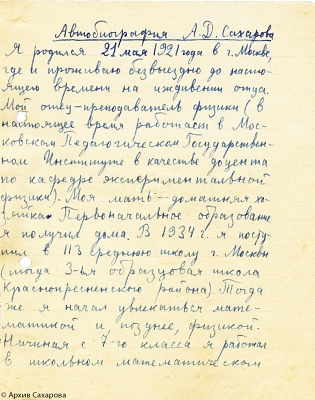 Автобиография А.Д. Сахарова
Я родился 21 мая 1921 года в г. Москве,
где и проживаю безвыездно до насто-
ящего времени на иждивении отца.
Мой отец – преподаватель физики (в
настоящее время работает в Мос-
ковском Педагогическом Государствен-
ном Институте в качестве доцента
по кафедре экспериментальной
физики). Моя мать – домашняя хо-
зяйка. Первоначальное образование
я получил дома. В 1934 г. я посту-
пил в 113 среднюю школу г. Москвы
(тогда 3-ья образцовая школа
Краснопресненского района). Тогда
же я начал увлекаться мате-
матикой и, позднее, физикой.
Начиная с 7-го класса я работал
в школьном математическом
© Архив Сахарова